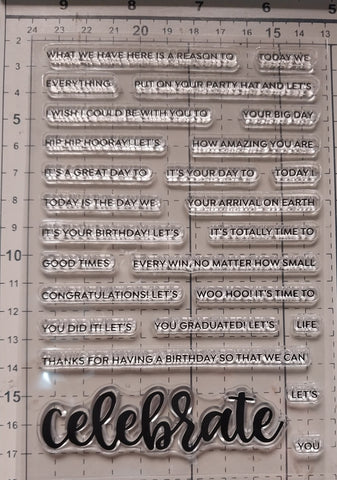 9 8 7 6 5
24 23 22 21 20 19 18 17 16 15 14 13
2
WHAT WE HAVE HERE IS A REASON TO TODAY WE
EVERYTHING PUT ON YOUR PARTY HAT AND LET'S
5
I WISH I COULD BE WITH YOU TO YOUR BIG DAY
HIP HIP HOORAY! LET'S HOW AMAZING YOU ARE
IT'S A GREAT DAY TO IT'S YOUR DAY TO TODAY I
TODAY IS THE DAY WE YOUR ARRIVAL ON EARTH
IT'S YOUR BIRTHDAY! LET'S IT'S TOTALLY TIME TO
10
GOOD TIMES EVERY WIN, NO MATTER HOW SMALL
CONGRATULATIONS! LET'S WOO HOO! IT'S TIME TO
YOU DID IT! LET'S YOU GRADUATED! LET'S LIFE
THANKS FOR HAVING A BIRTHDAY SO THAT WE CAN
15
LET'S
celebrate
YOU